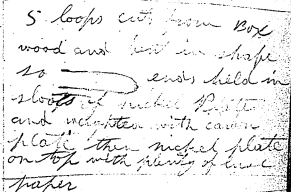 5 loops cut from Box
wood and bent in shape
so ends held in
slots of nickel Plate
and weighted with carbon
plate then nickel plate
on top with plenty of
paper